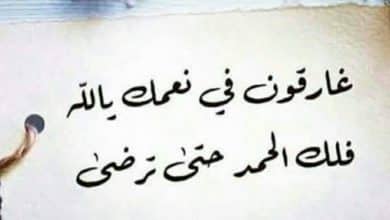 غارقون في نعمك يالله
فلك الحمد حتىٰ ترضىٰ